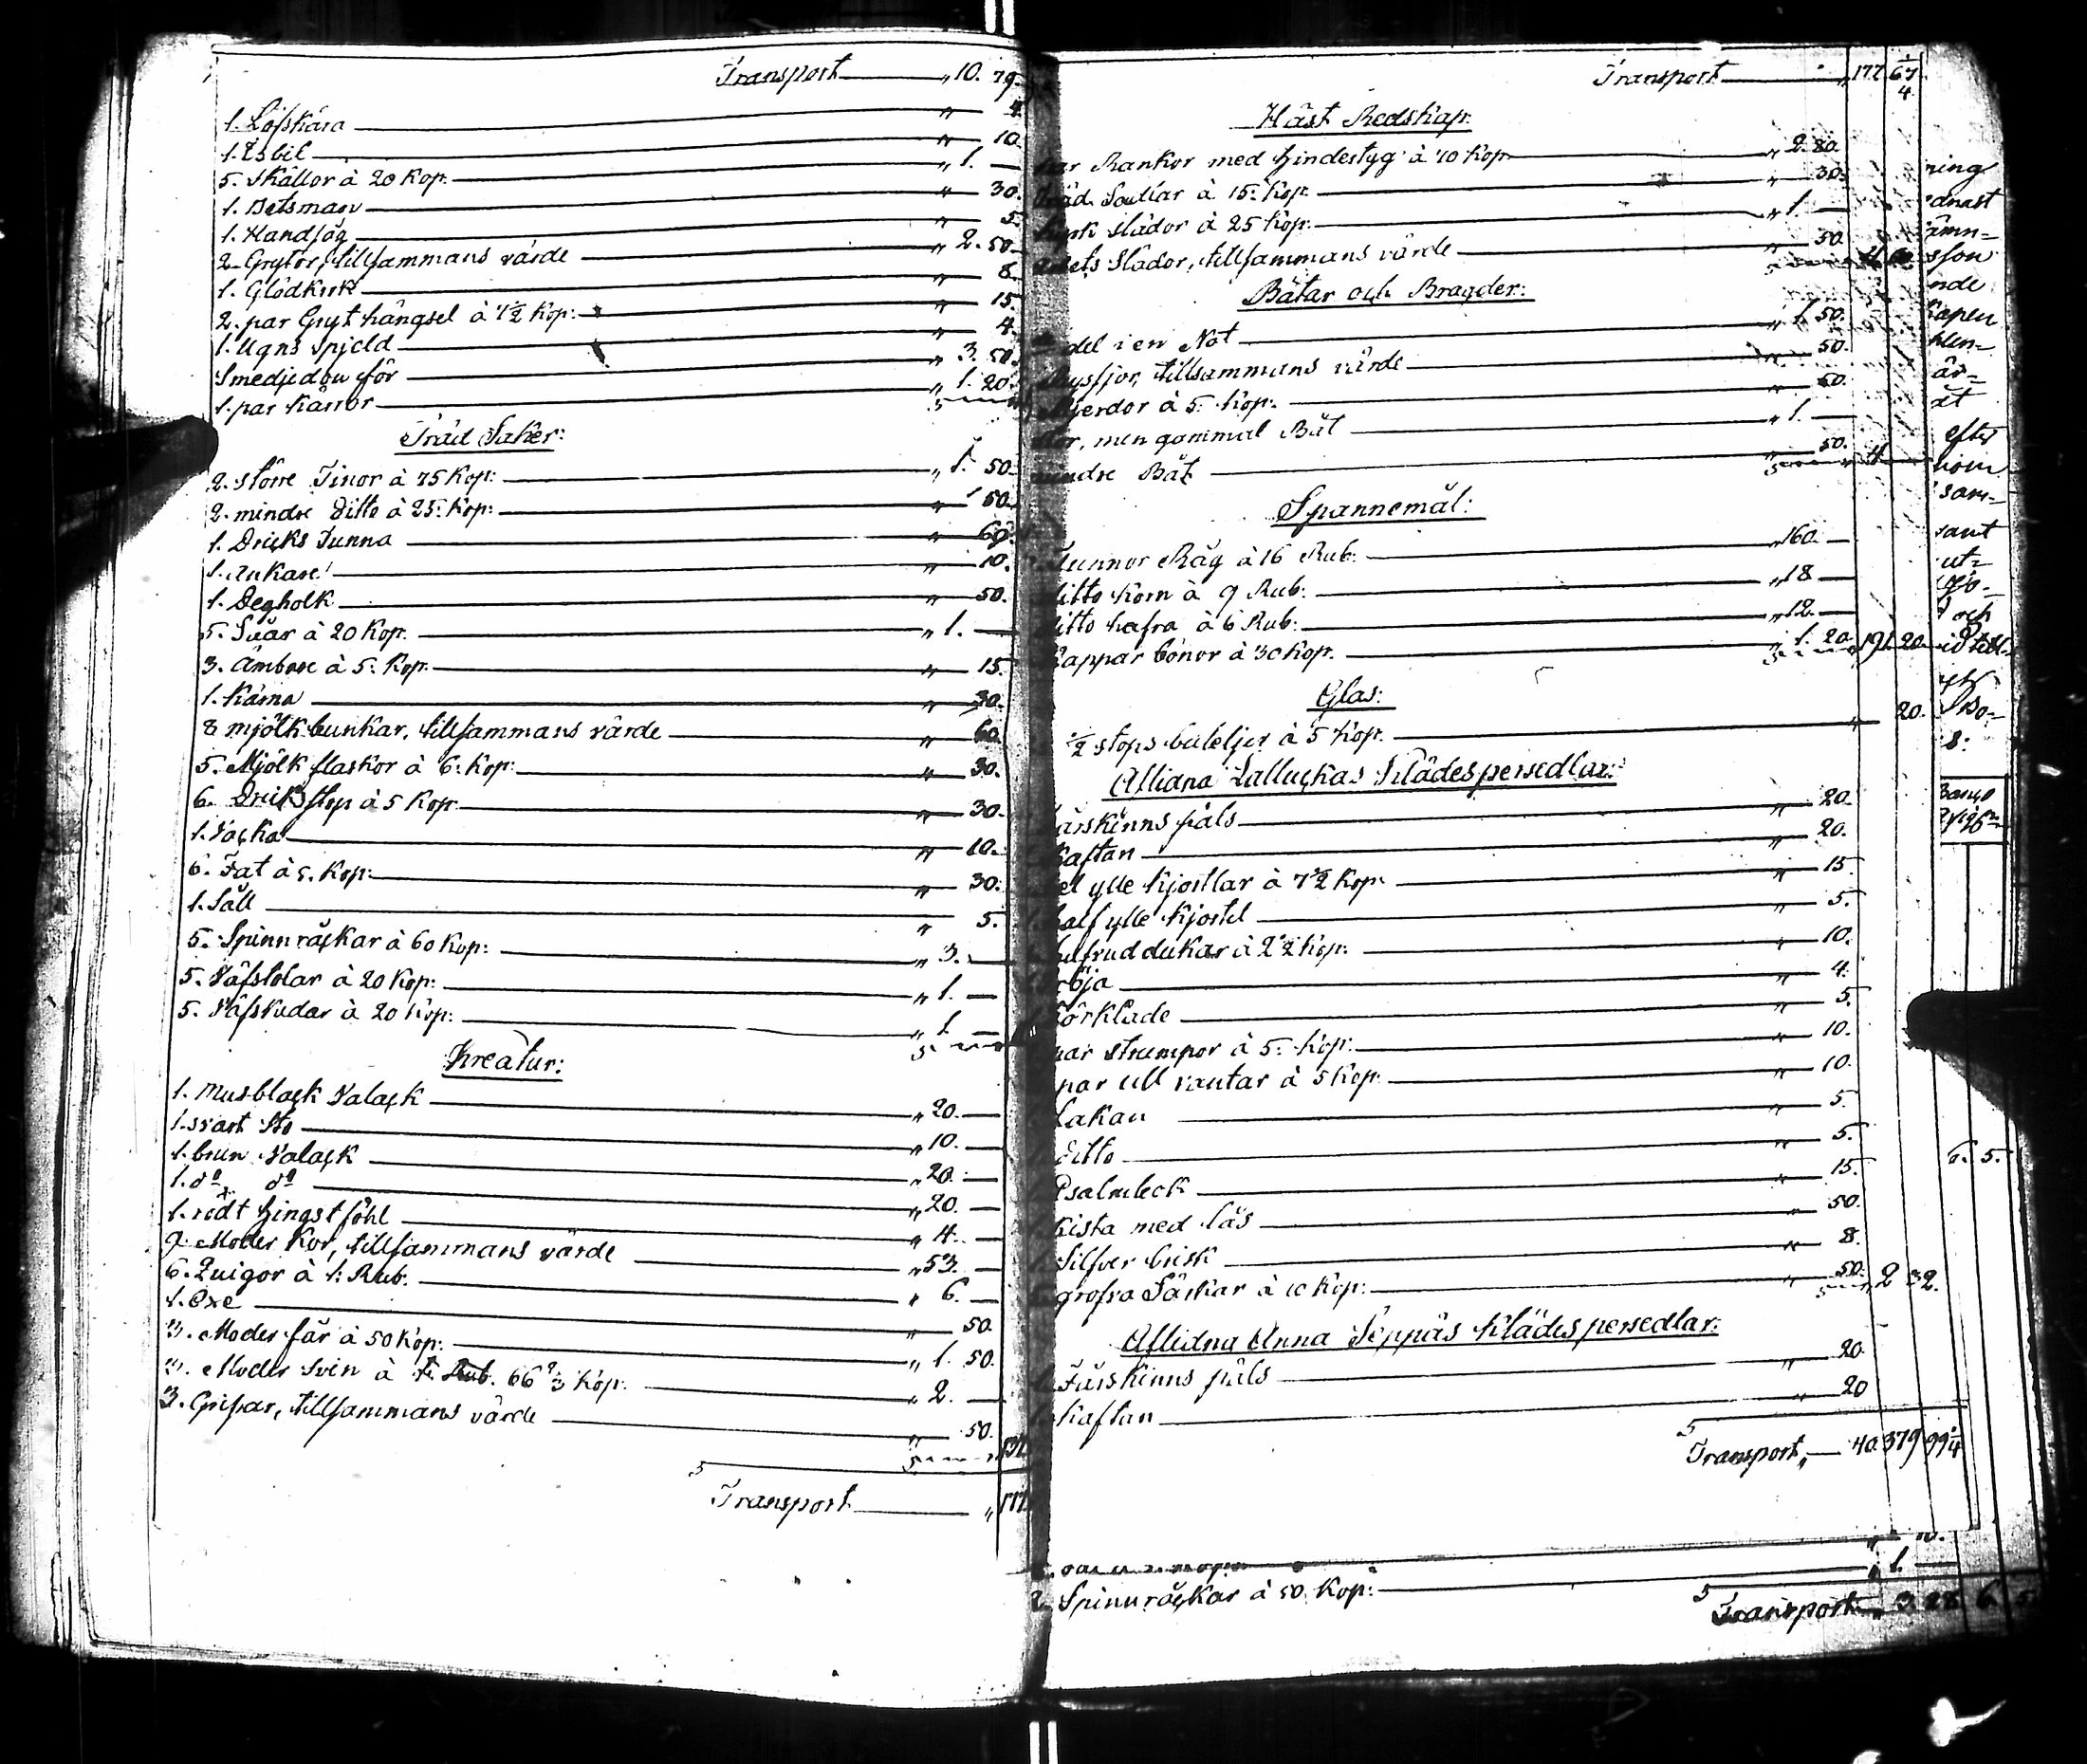 Transport „ 10. 79.
1. Löfskära „ 4
1. Isbil „ 10.
5. Skällor à 20 Kop. „ 1. —
1. Betsman „ 30.
1. Handsåg „ 5.
2. Grytor, tillsammans värde „ 2. 50.
1. Glödkrok „ 8.
2. par Gryt hängsel à 7½ Kop: „ 15.
1. Ugns Spjeld „ 4.
Smedjedon för „ 3. 50.
1. par Karror „ 1. 20.
Träd Saker:
2. större Tinor à 75 Kop: „ 1. 50.
2. mindre Ditto à 25: Kop: „ 50.
1. Dricks Tunna „ 60.
1. Ankare „ 10.
1. Degholk „ 50.
5. Såar à 20 Kop. „ 1. —
3. Ämbare à 5: Kop. „ 15.
1. Kärna „ 30.
8 mjölk bunkar, tillsammans värde „ 60.
5. Mjölk flaskor à 6: Kop: „ 30.
6. Dricks stop à 5 Kop. „ 30.
1. „ 10.
6. Fat à 5. Kop: „ 30.
1. Såll „ 5.
5. Spinnråckar à 60 Kop: „ 3. —
5. Väfstolar à 20 Kop: „ 1. —
5. Väfskedar à 20 Kop: „ 1. —
Kreatur:
1. musblack Valack „ 20. —
1. svart Sto „ 10. —
1. brun Valack „ 20. —
1. do do „ 20. —
1. rödt hingst föhl „ 4. —
9. Moder Kor, tillsammans värde „ 53. —
6. Quigor à 1: Rub. „ 6. —
1. Oxe „ 50.
3. Moder får à 50 Kop: „ 1. 50.
3. Moder Svin à 66⅔ Kop: „ 2. —
3. Grisar, tillsammans värde „ 50.
Transport „ 177
Transport „ 177 67¼
Häst Redskap:
par Rankor med hindestyg à 70 Kop „ 2. 80.
à 15: Kop „ 30.
Slädor à 25 Kop: „ 1. —
Slädor, tillsammans värde „ 50. 4 60
Båtar och Bragder:
del i en Not „ 1. 50.
Rysjor, tillsammans värde „ 50.
Mjerdor à 5: Kop. „ 50.
men gammal Båt „ 1. —
mindre Båt „ 50. 4
Spannemål:
Tunnor Råg à 16 Rub: „ 160. —
ditto Korn à 9 Rub: „ 18 —
ditto hafra à 6 Rub: „ 12. —
Kappar bönor à 30 Kop. „ 1. 20. 191. 20.
Glas:
½ stops buteljer à 5 Kop. „ 20.
Aflidna Klädespersedlar:
Fårskinns päls „ 20.
Kaftan „ 20.
Hel ylle Kjortlar à 7½ Kop. „ 15.
half ylle Kjortel „ 5.
hufvuddukar à 2½ Kop: „ 10.
Tröja „ 4.
Förkläde „ 5.
par strumpor à 5: Kop: „ 10.
par ull vantar à 5 Kop. „ 10.
Lakan „ 5.
ditto „ 5.
Psalmbok „ 15.
Kista med lås „ 50.
Silfver brisk „ 8.
grofva Särkar à 10 Kop: „ 50. „ 2 32.
Aflidna Anna Seppäs Klädespersedlar:
1. Fårskinns päls „ 20.
1. Kaftan „ 20
Transport, — 40. 379 99¼
2. Spinnråckar à 50. Kop: „ 1. —
Transport „ 3. 28 6. 5
ning
slon
nde
efter
sam-
ut-
och
6. 5.